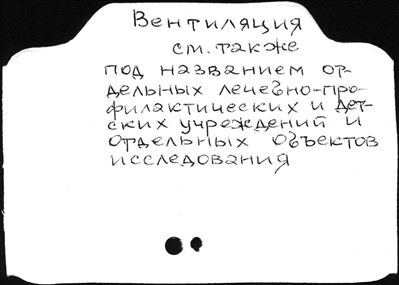 Вентиляция
см. также
под названием от-
дельных лечебно-про-
филактических и дет-
ских учреждений и
отдельных объектов
исследования